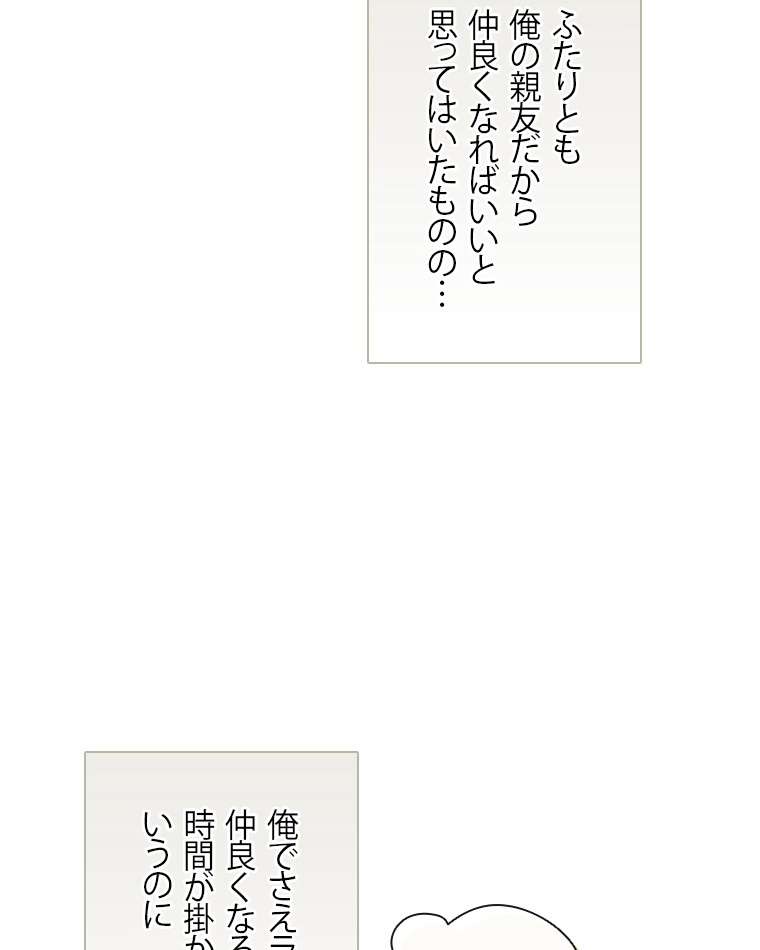 ふたりとも
俺の親友だから
仲良くなればいいと
思ってはいたものの…
俺でさえラ
仲良くなる
時間が掛か
いうのに